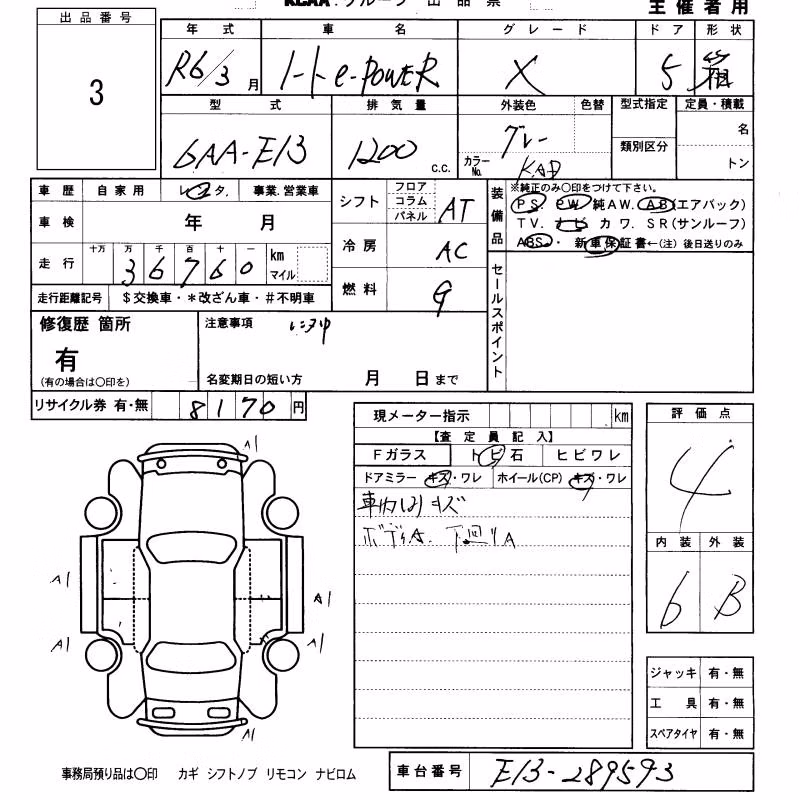 KCAA.グループ 出品票
主催者用
出品番号
3
年式 車名 グレード ドア 形状
R6/3月 ノート e-POWER X 5 箱
型式 排気量 外装色 色替 型式指定 定員・積載
6AA-E13 1200 c.c. グレー 名
カラーNo. KAD 類別区分 トン
車歴 自家用 レンタ. 事業.営業車
車検 年 月
走行 十万 万 千 百 十 一
36760 km マイル
走行距離記号 $交換車・*改ざん車・#不明車
シフト フロア コラム パネル AT
冷房 AC
燃料 G
装備品
※純正のみ○印をつけて下さい。
PS PW 純AW. AB(エアバック)
TV. ナビ カワ. SR(サンルーフ)
ABS・新車保証書←(注)後日送りのみ
セールスポイント
修復歴 箇所
有
(有の場合は○印を)
注意事項
名変期日の短い方 月 日まで
リサイクル券 有・無 8170円
現メーター指示 km
【査定員記入】
Fガラス トビ石 ヒビワレ
ドアミラー キズ・ワレ ホイール(CP) キズ・ワレ
車内 キズ
下回りA
評価点
4
内装 外装
6 B
ジャッキ 有・無
工具 有・無
スペアタイヤ 有・無
A1
A1
A1
A1
A1
A1
事務局預り品は○印 カギ シフトノブ リモコン ナビロム
車台番号 E13-289593